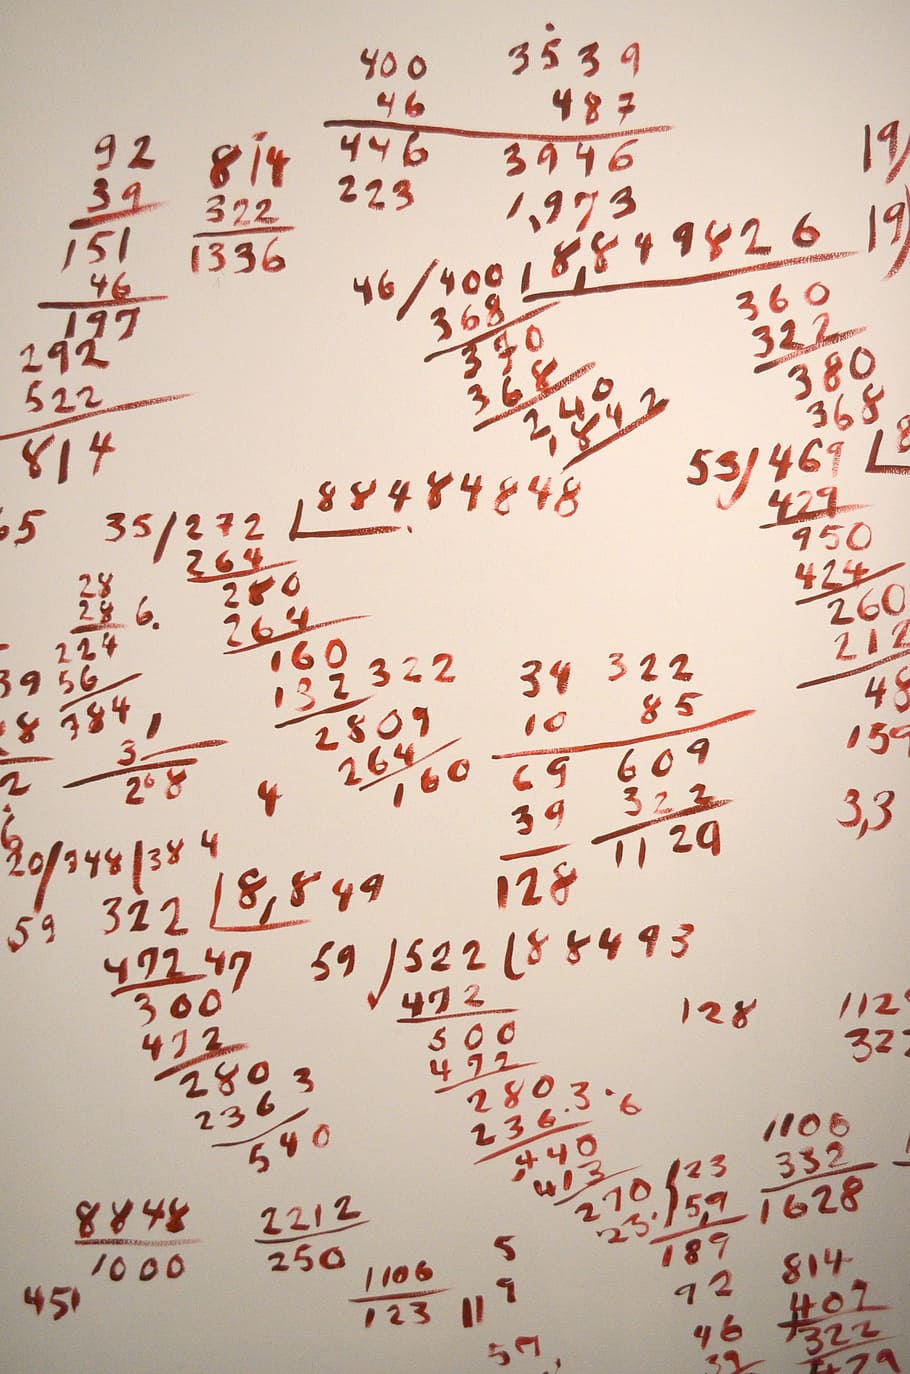 400 3539
46 487
446 3946
223 1,973
92
39
151
46
197
292
522
814
814
322
1336
19/
19)
46/400 1 8,849826
368
370
368
240
1,842
360
322
380
368
53)469
429
950
424
260
212
48
159
3,3
65
35/272 88484848
264
280
264
160
132 322
2809
264
160
28
28 6.
224
56
784
31
268
39
18
2
4
34 322
10 85
69 609
39 322
128 1129
6
20/348/384
59
322 8,849
472 47
300
472
280 3
236
540
59)522 88493
472
500
472
280 3.6
236.
440
413
270
128
1129
322
1106
332
1628
23. 23
5,9
189
8848
1000
2212
250
451
1106
123
5
11 9
57,
92
46
39
814
407
322
479